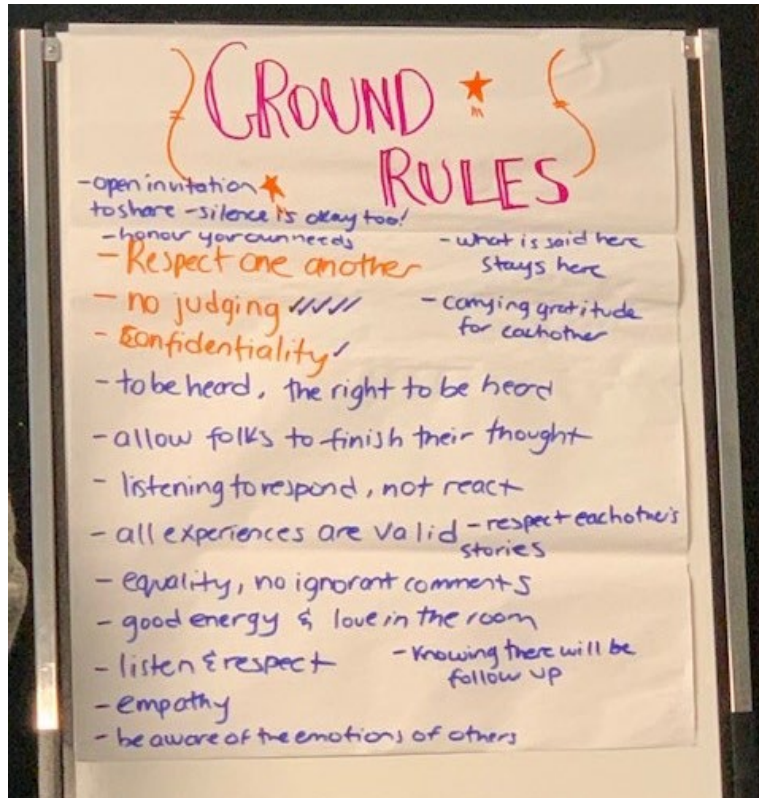 GROUND
RULES
-open invitation
to share -silence is okay too!
-honour your own needs
- Respect one another
- what is said here
stays here
- no judging ✓✓✓✓✓
- carrying gratitude
for eachother
- Confidentiality ✓
- to be heard, the right to be heard
- allow folks to finish their thought
- listening to respond, not react
- all experiences are valid - respect eachother's
stories
- equality, no ignorant comments
- good energy & love in the room
- listen & respect
- Knowing there will be
follow up
- empathy
- be aware of the emotions of others